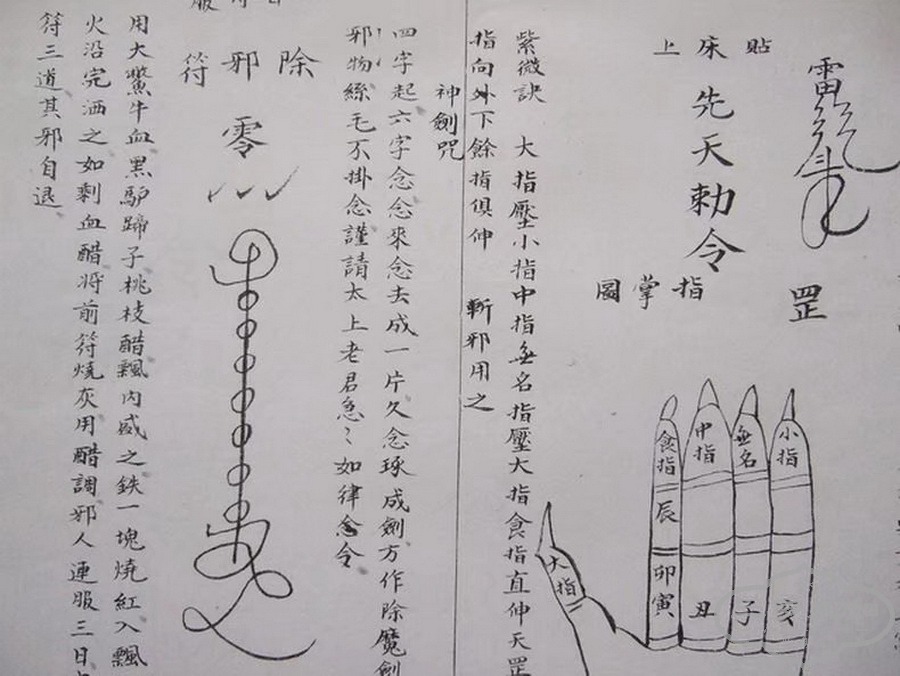 雷
罡
貼床上
先天勅令
指掌圖
小指
亥
無名
子
中指
丑
食指
辰
卯
寅
大指
紫微訣 大指壓小指中指無名指壓大指食指直伸天罡
指向外下餘指俱伸 斬邪用之
神劍咒
四字起六字念念來念去成一片久念琢成劍方作除魔劍
邪物絲毛不掛念謹請太上老君急〻如律令
除邪符
零
用大鱉牛血黑驢蹄子桃枝醋瓢內盛之鉄一塊燒紅入瓢
火沿完洒之如剩血醋將前符燒灰用醋調邪人連服三日
符三道其邪自退